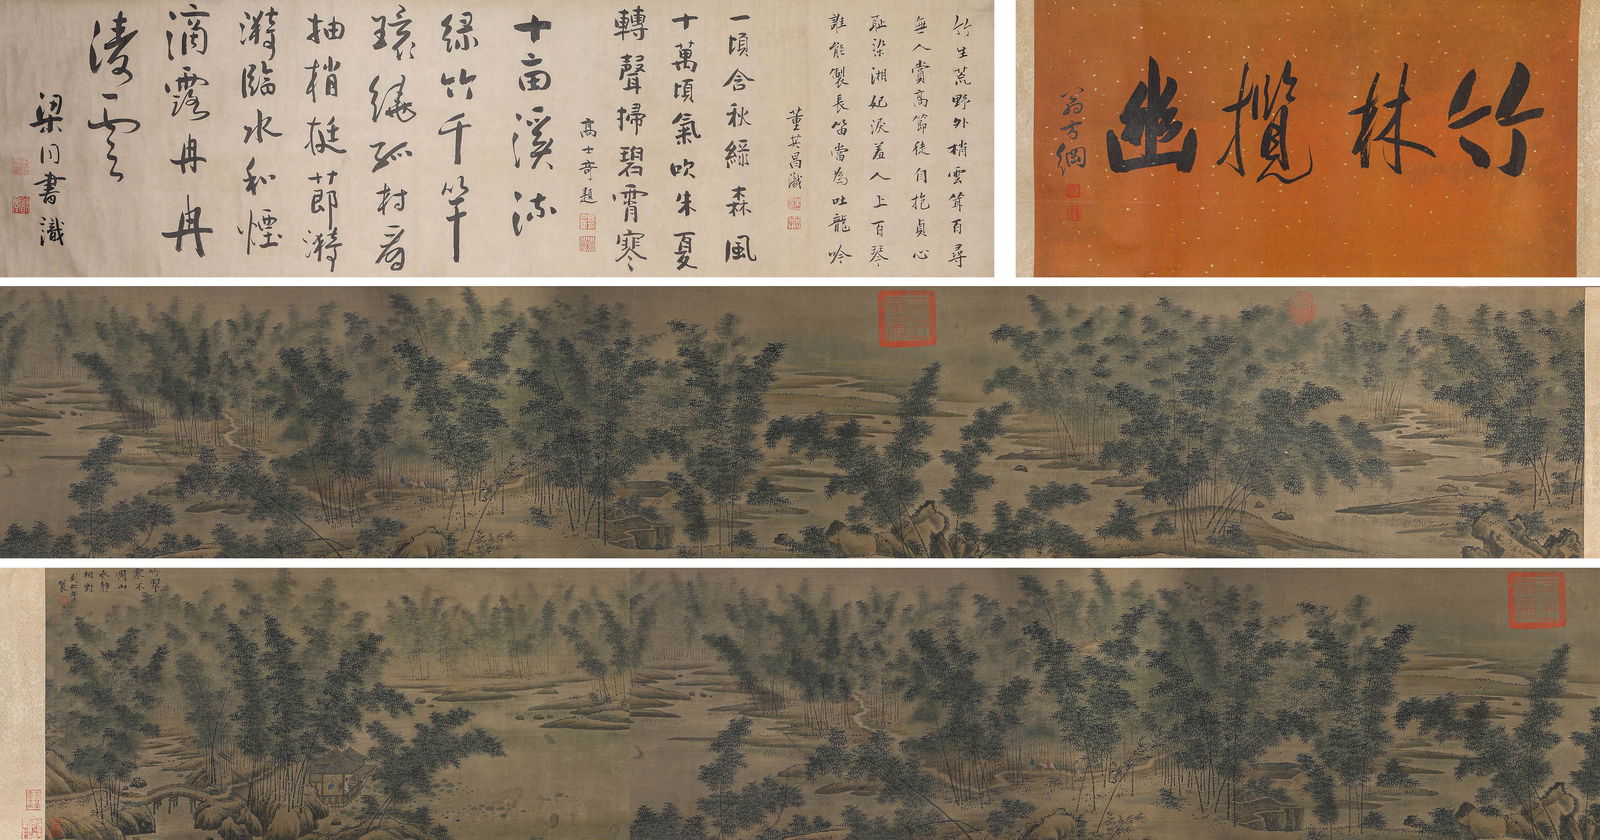 竹林攬幽
翁方綱
竹生荒野外梢雲聳百尋
無人賞高節徒自抱貞心
耻染湘妃淚羞人上百琴
誰能製長笛當為吐龍吟
董其昌識
一頃含秋綠森風
十萬頃氣吹朱夏
轉聲掃碧霄寒
高士奇題
十亩溪流
綠竹千竿
環繞孤村看
抽梢挺節漪
漪臨水和煙
滴露冉冉
凌雲
梁同書識
竹翠
寒不
凋山
水靜
相對
劉松年
製